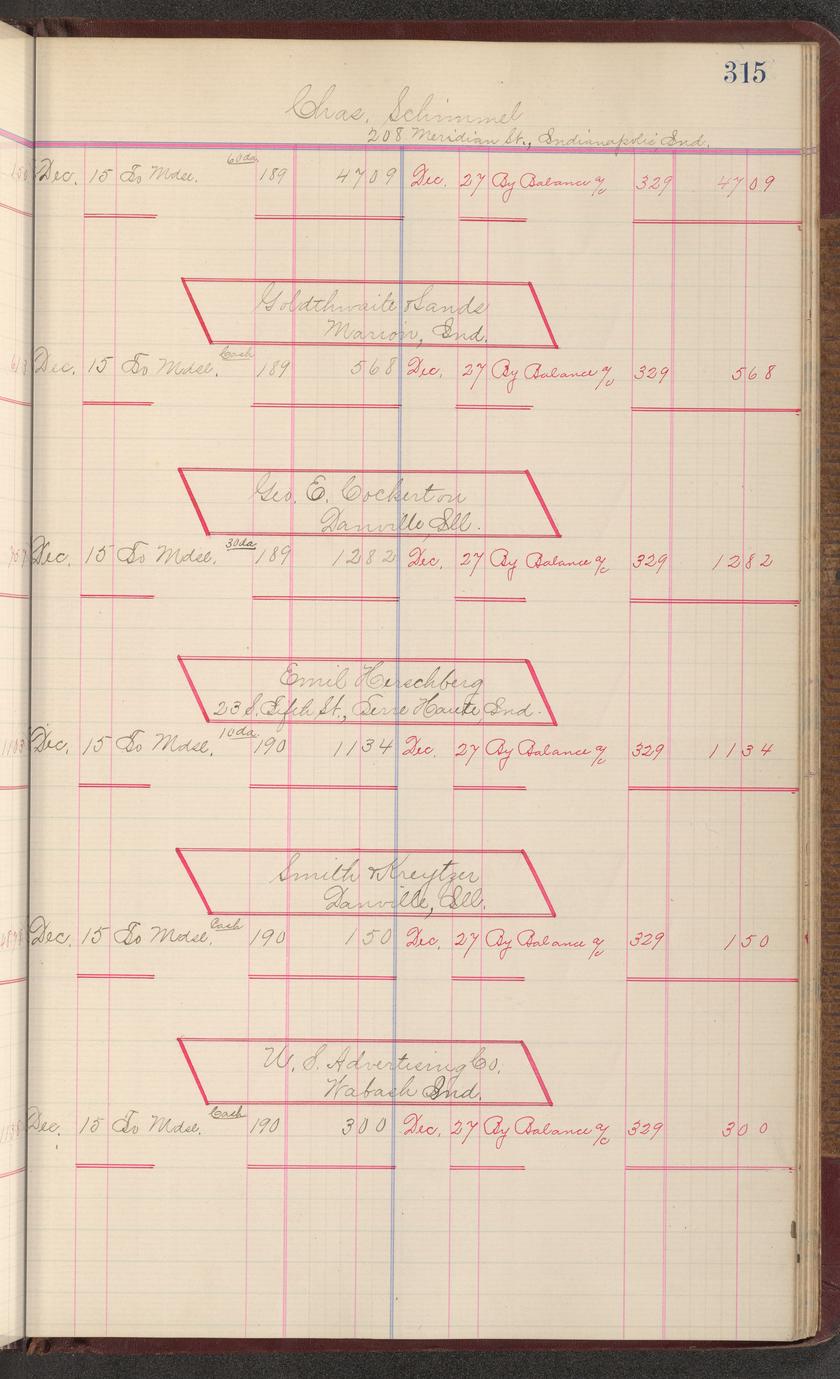 315
Chas. Schimmel
208 Meridian St., Indianapolis, Ind.
Dec. 15 To Mdse. 60da 189 4709 Dec. 27 By Balance a/c 329 4709
Goldthwaite & Sands
Marion, Ind.
Dec. 15 To Mdse. Cash 189 568 Dec. 27 By Balance a/c 329 568
Geo. E. Cockerton
Danville, Ill.
Dec. 15 To Mdse. 30da 189 1282 Dec. 27 By Balance a/c 329 1282
Emil Herschberg
23 S. Fifth St., Terre Haute, Ind.
Dec. 15 To Mdse. 10da. 190 1134 Dec. 27 By Balance a/c 329 1134
Smith & Kreytzer
Danville, Ill.
Dec. 15 To Mdse. Cash 190 150 Dec. 27 By Balance a/c 329 150
U. S. Advertising Co.
Wabash Ind.
Dec. 15 To Mdse. Cash 190 300 Dec. 27 By Balance a/c 329 300